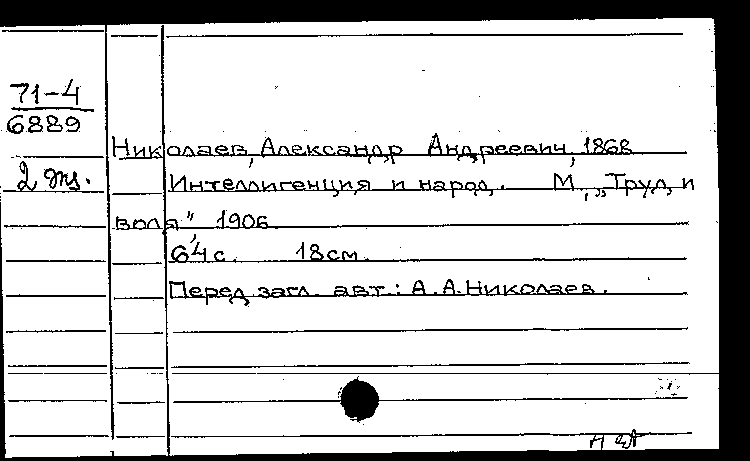 71-4
6889
2 экз.
Николаев, Александр Андреевич, 1868
Интеллигенция и народ. М., „Труд и
воля", 1906.
64 с. 18 см.
Перед загл. авт.: А. А. Николаев.